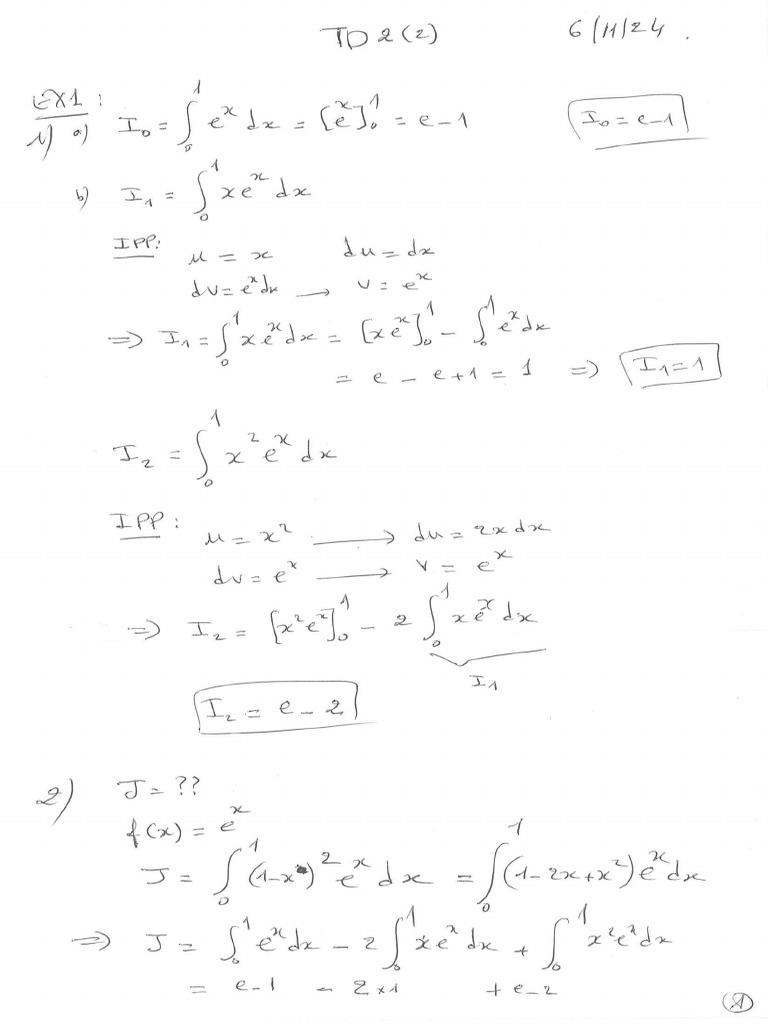 TD 2 (2) 6/11/24.
EX1 :
1) a) I₀ = ∫₀¹ eˣ dx = [eˣ]₀¹ = e-1 I₀ = e-1
b) I₁ = ∫₀¹ x eˣ dx
IPP: u = x du = dx
dv = eˣdx → v = eˣ
⇒ I₁ = ∫₀¹ x eˣ dx = [x eˣ]₀¹ - ∫₀¹ eˣ dx
= e - e + 1 = 1 ⇒ I₁ = 1
I₂ = ∫₀¹ x² eˣ dx
IPP : u = x² → du = 2x dx
dv = eˣ → v = eˣ
⇒ I₂ = [x² eˣ]₀¹ - 2 ∫₀¹ x eˣ dx
I₁
I₂ = e - 2
2) J = ??
f(x) = eˣ
J = ∫₀¹ (1-x)² eˣ dx = ∫₀¹ (1-2x+x²) eˣ dx
⇒ J = ∫₀¹ eˣ dx - 2 ∫₀¹ x eˣ dx + ∫₀¹ x² eˣ dx
= e-1 - 2×1 + e-2